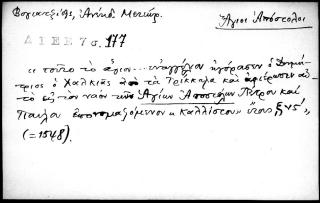 Βογιατζίδ., Ἀνέκδ. Μετεώρ.
Ἅγιοι Ἀπόστολοι
ΔΙΕΕ 7 σ. 177
«τοῦτο τὸ ἅγιον ... εὐαγγέλιον ἠγόρασεν ὁ Δημή-
τριος ὁ Χαλκιᾶς ἀπὸ τὰ Τρίκκαλα καὶ ἀφιέρωσεν αὐ-
τὸ εἰς τὸν ναὸν τῶν Ἁγίων Ἀποστόλων Πέτρου καὶ
Παύλου ἐπονομαζόμενον Καλλίστου ἔτους ζνς'»
(=1548).